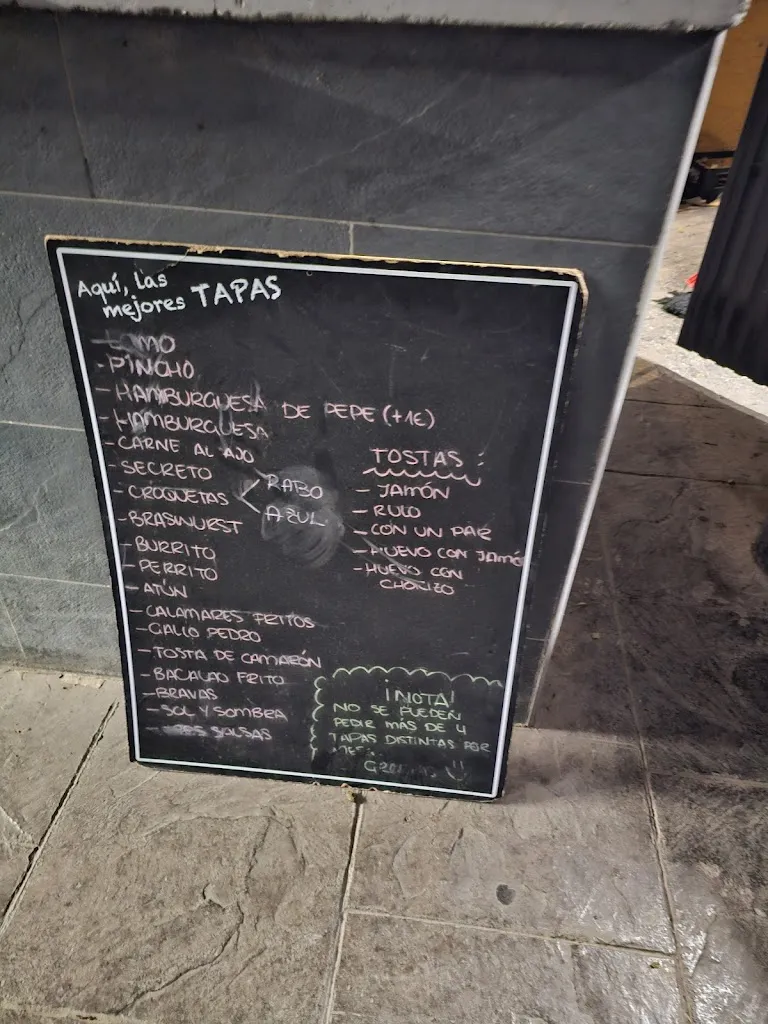 Aquí, las
mejores TAPAS
- LOMO
- PINCHO
- HAMBURGUESA DE PEPE (+1€)
- HAMBURGUESA
- CARNE AL AJO
- SECRETO
- CROQUETAS < RABO
AZUL
- BRASWURST
- BURRITO
- PERRITO
- ATÚN
- CALAMARES FRITOS
- GALLO PEDRO
- TOSTA DE CAMARÓN
- BACALAO FRITO
- BRAVAS
- SOL Y SOMBRA
SALSAS
TOSTAS:
- JAMÓN
- RULO
- CON UN PAR
- HUEVO CON JAMÓN
- HUEVO CON
CHORIZO
¡NOTA!
NO SE PUEDEN
PEDIR MÁS DE 4
TAPAS DISTINTAS POR
MESA.